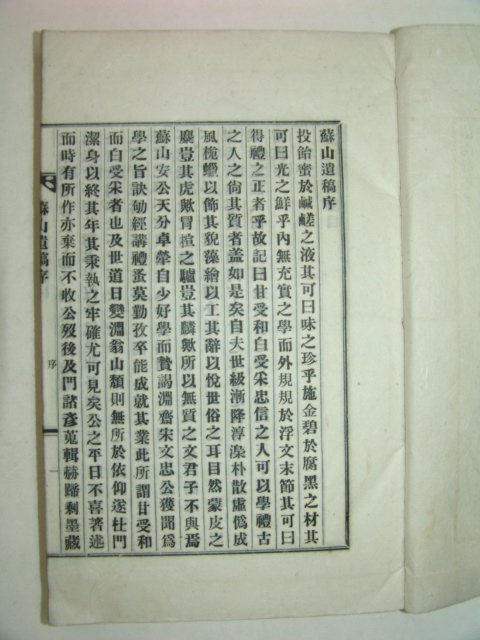 蘇山遺稿序
投飴蜜於鹹鹺之液其可曰味之珍乎施金碧於腐黑之材其
可曰光之鮮乎內無充實之學而外規規於浮文末節其可曰
得禮之正者乎故記曰甘受和白受采忠信之人可以學禮古
之人之尙其質者盖如是矣自夫世級漸降淳漓朴散虛僞成
風梔蠟以飾其貌藻繪以工其辭以悅世俗之耳目然蒙皮之
麋豈其虎歟冒楦之驢豈其麟歟所以無質之文君子不與焉
蘇山安公天分卓犖自少好學而贄謁淵齋宋文忠公獲聞爲
學之旨訣劬經講禮蚤莫勤孜卒能成就其業此所謂甘受和
而白受采者也及世道日變淵翁山頹則無所於依仰遂杜門
潔身以終其年其秉執之牢確尤可見矣公之平日不喜著述
而時有所作亦棄而不收公歿後及門諸彥蒐輯赫蹏剩墨藏
蘇山遺稿序
序
一